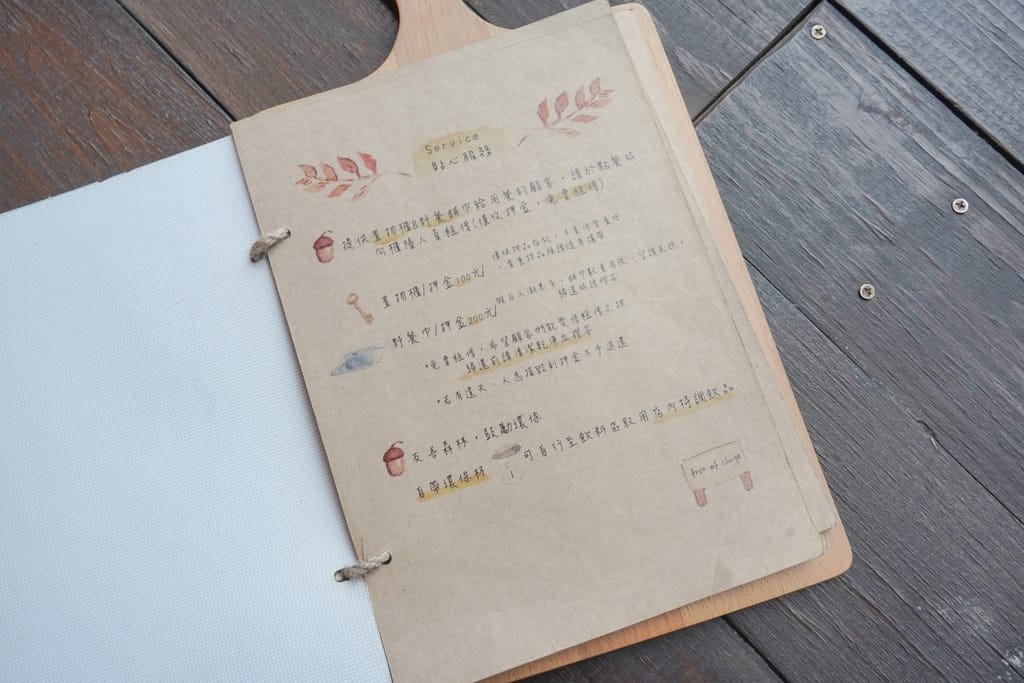 Service
貼心服務
提供置物櫃&野餐鋪巾給用餐的顧客，請於點餐時
向櫃檯人員租借(僅收押金，免費租借)
置物櫃/押金100元/
貴重物品須請隨身攜帶
野餐巾/押金200元/
歸還時請摺好
*免費租借，希望顧客們能愛惜租借之物
歸還前請清潔乾淨並摺好
*若有遺失、人為損毀則押金不予退還
友善森林，鼓勵環保
自帶環保杯 可自行至飲料區取用店內特調飲品
free of charge